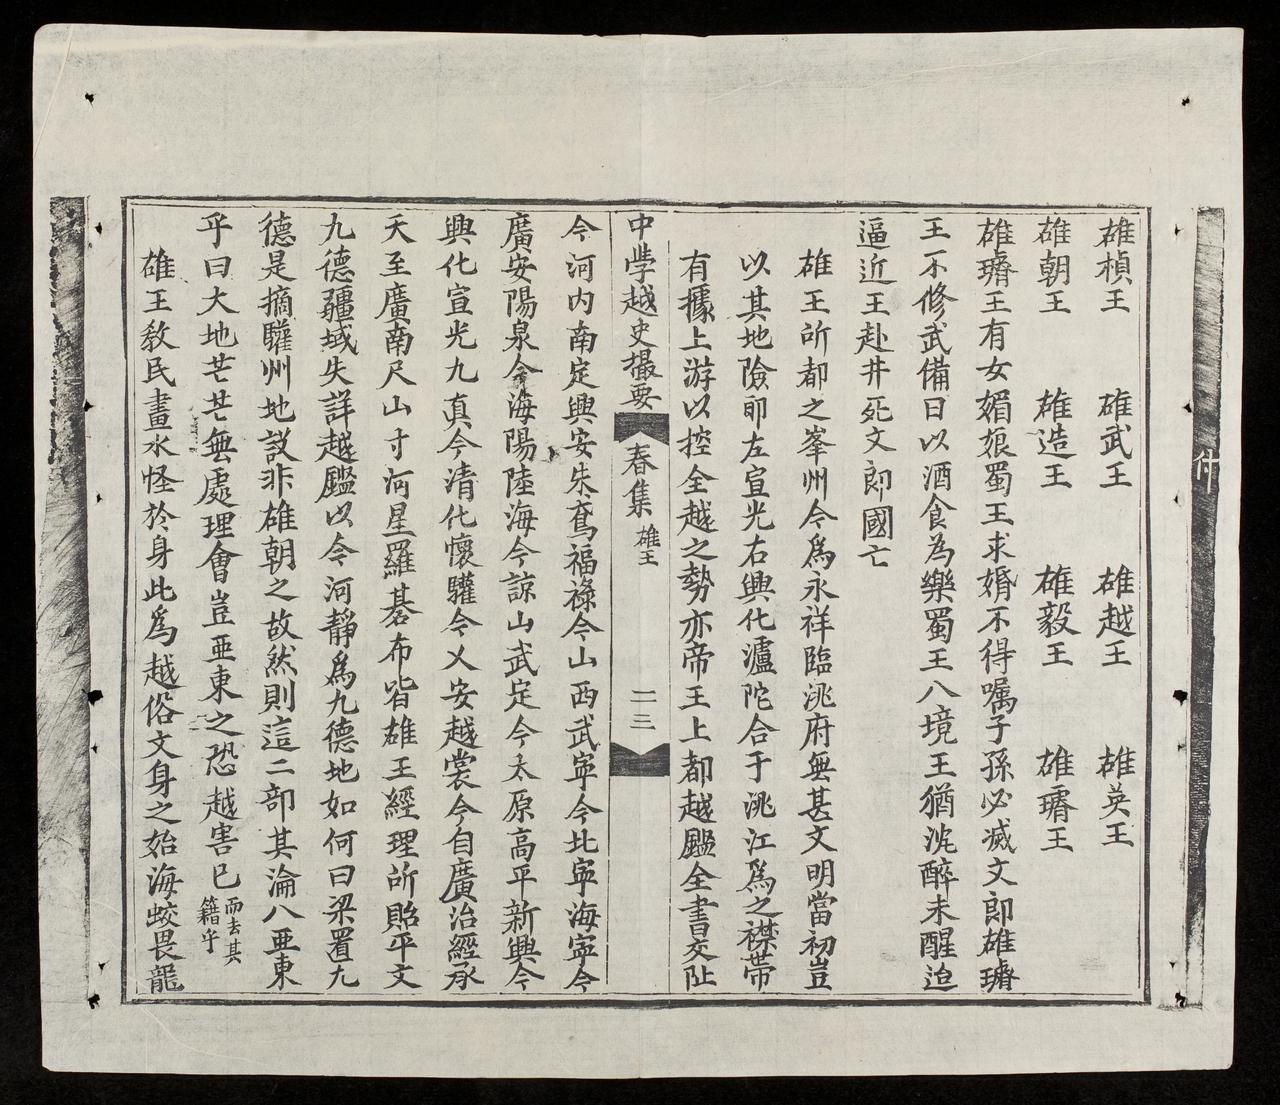 雄楨王 雄武王 雄越王 雄英王
雄朝王 雄造王 雄毅王 雄璿王
雄璿王有女媚娘蜀王求婚不得嘱子孫必滅文郎雄璿
王不修武備日以酒食為樂蜀王入境王猶沈醉未醒迫
逼近王赴井死文郎國亡
雄王所都之峯州今爲永祥臨洮府無甚文明當初豈
以其地險耶左宣光右興化瀘陀合于洮江爲之襟帶
有據上游以控全越之勢亦帝王上都越鑑全書交阯
中學越史撮要 春集 雄王 一三
今河内南定興安朱鳶福祿今山西武寧今北寧海寧今
廣安陽泉今海陽陸海今諒山武定今太原高平新興今
興化宣光九真今清化懷驩今乂安越裳今自廣治經承
天至廣南尺山寸河星羅碁布皆雄王經理所貽平文
九德疆域失詳越鑑以今河靜爲九德地如何曰梁置九
德是摘驩州地設非雄朝之故然則這二部其淪入亜東
乎曰大地茫茫無處理會豈亜東之恐越害已而去其籍乎
雄王教民畫水怪於身此爲越俗文身之始海蛟畏龍
什